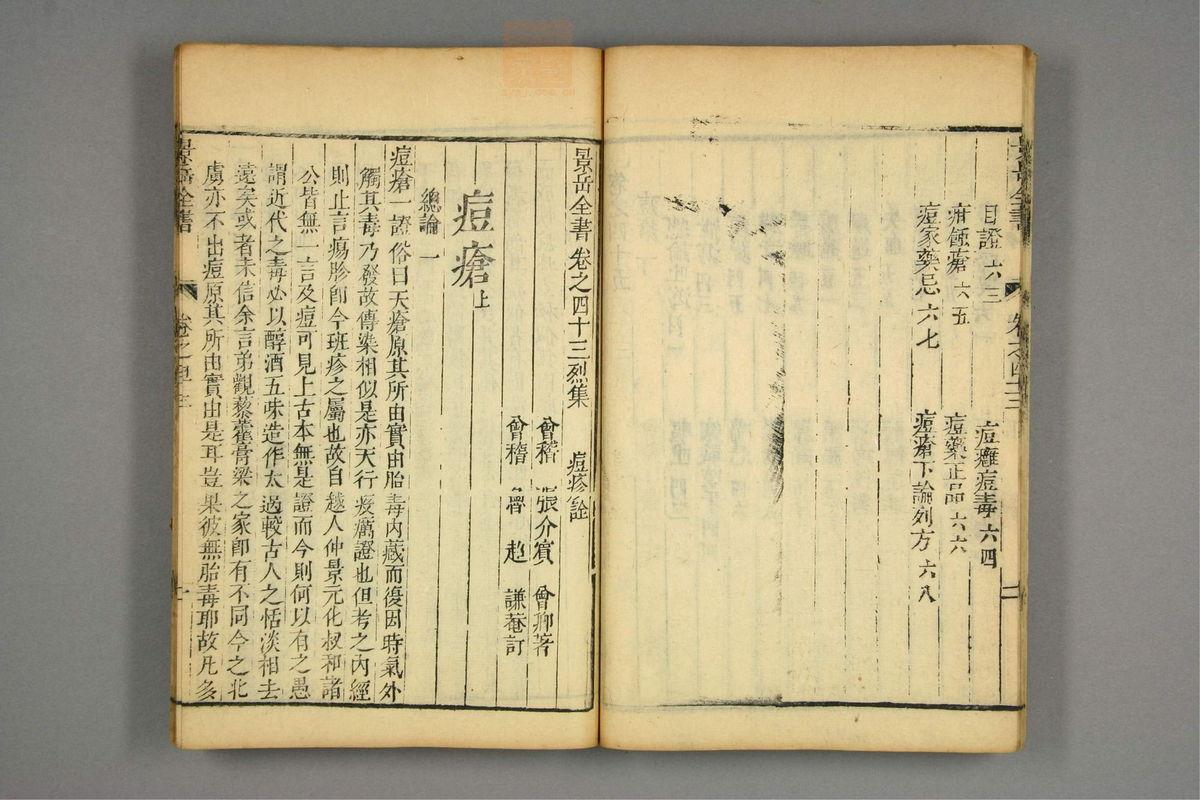 目證 六三
痘癰痘毒 六四
疳蝕瘡 六五
痘藥正品 六六
痘家藥忌 六七
痘瘡下論列方 六八
景岳全書 卷之四十三烈集 痘疹詮
會稽 張介賓 會卿著
會稽 魯超 謙菴訂
痘瘡上
總論 一
痘瘡一證俗曰天瘡原其所由實由胎毒內藏而復因時氣外
觸其毒乃發故傳染相似是亦天行疫癘證也但考之內經
則止言瘍胗卽今班疹之屬也故自越人仲景元化叔和諸
公皆無一言及痘可見上古本無是證而今則何以有之愚
謂近代之毒必以醇酒五味造作太過較古人之恬淡相去
遠矣或者未信余言弟觀藜藿膏粱之家卽有不同今之北
虜亦不出痘原其所由實由是耳豈果彼無胎毒耶故凡多
景岳全書 卷之四十三